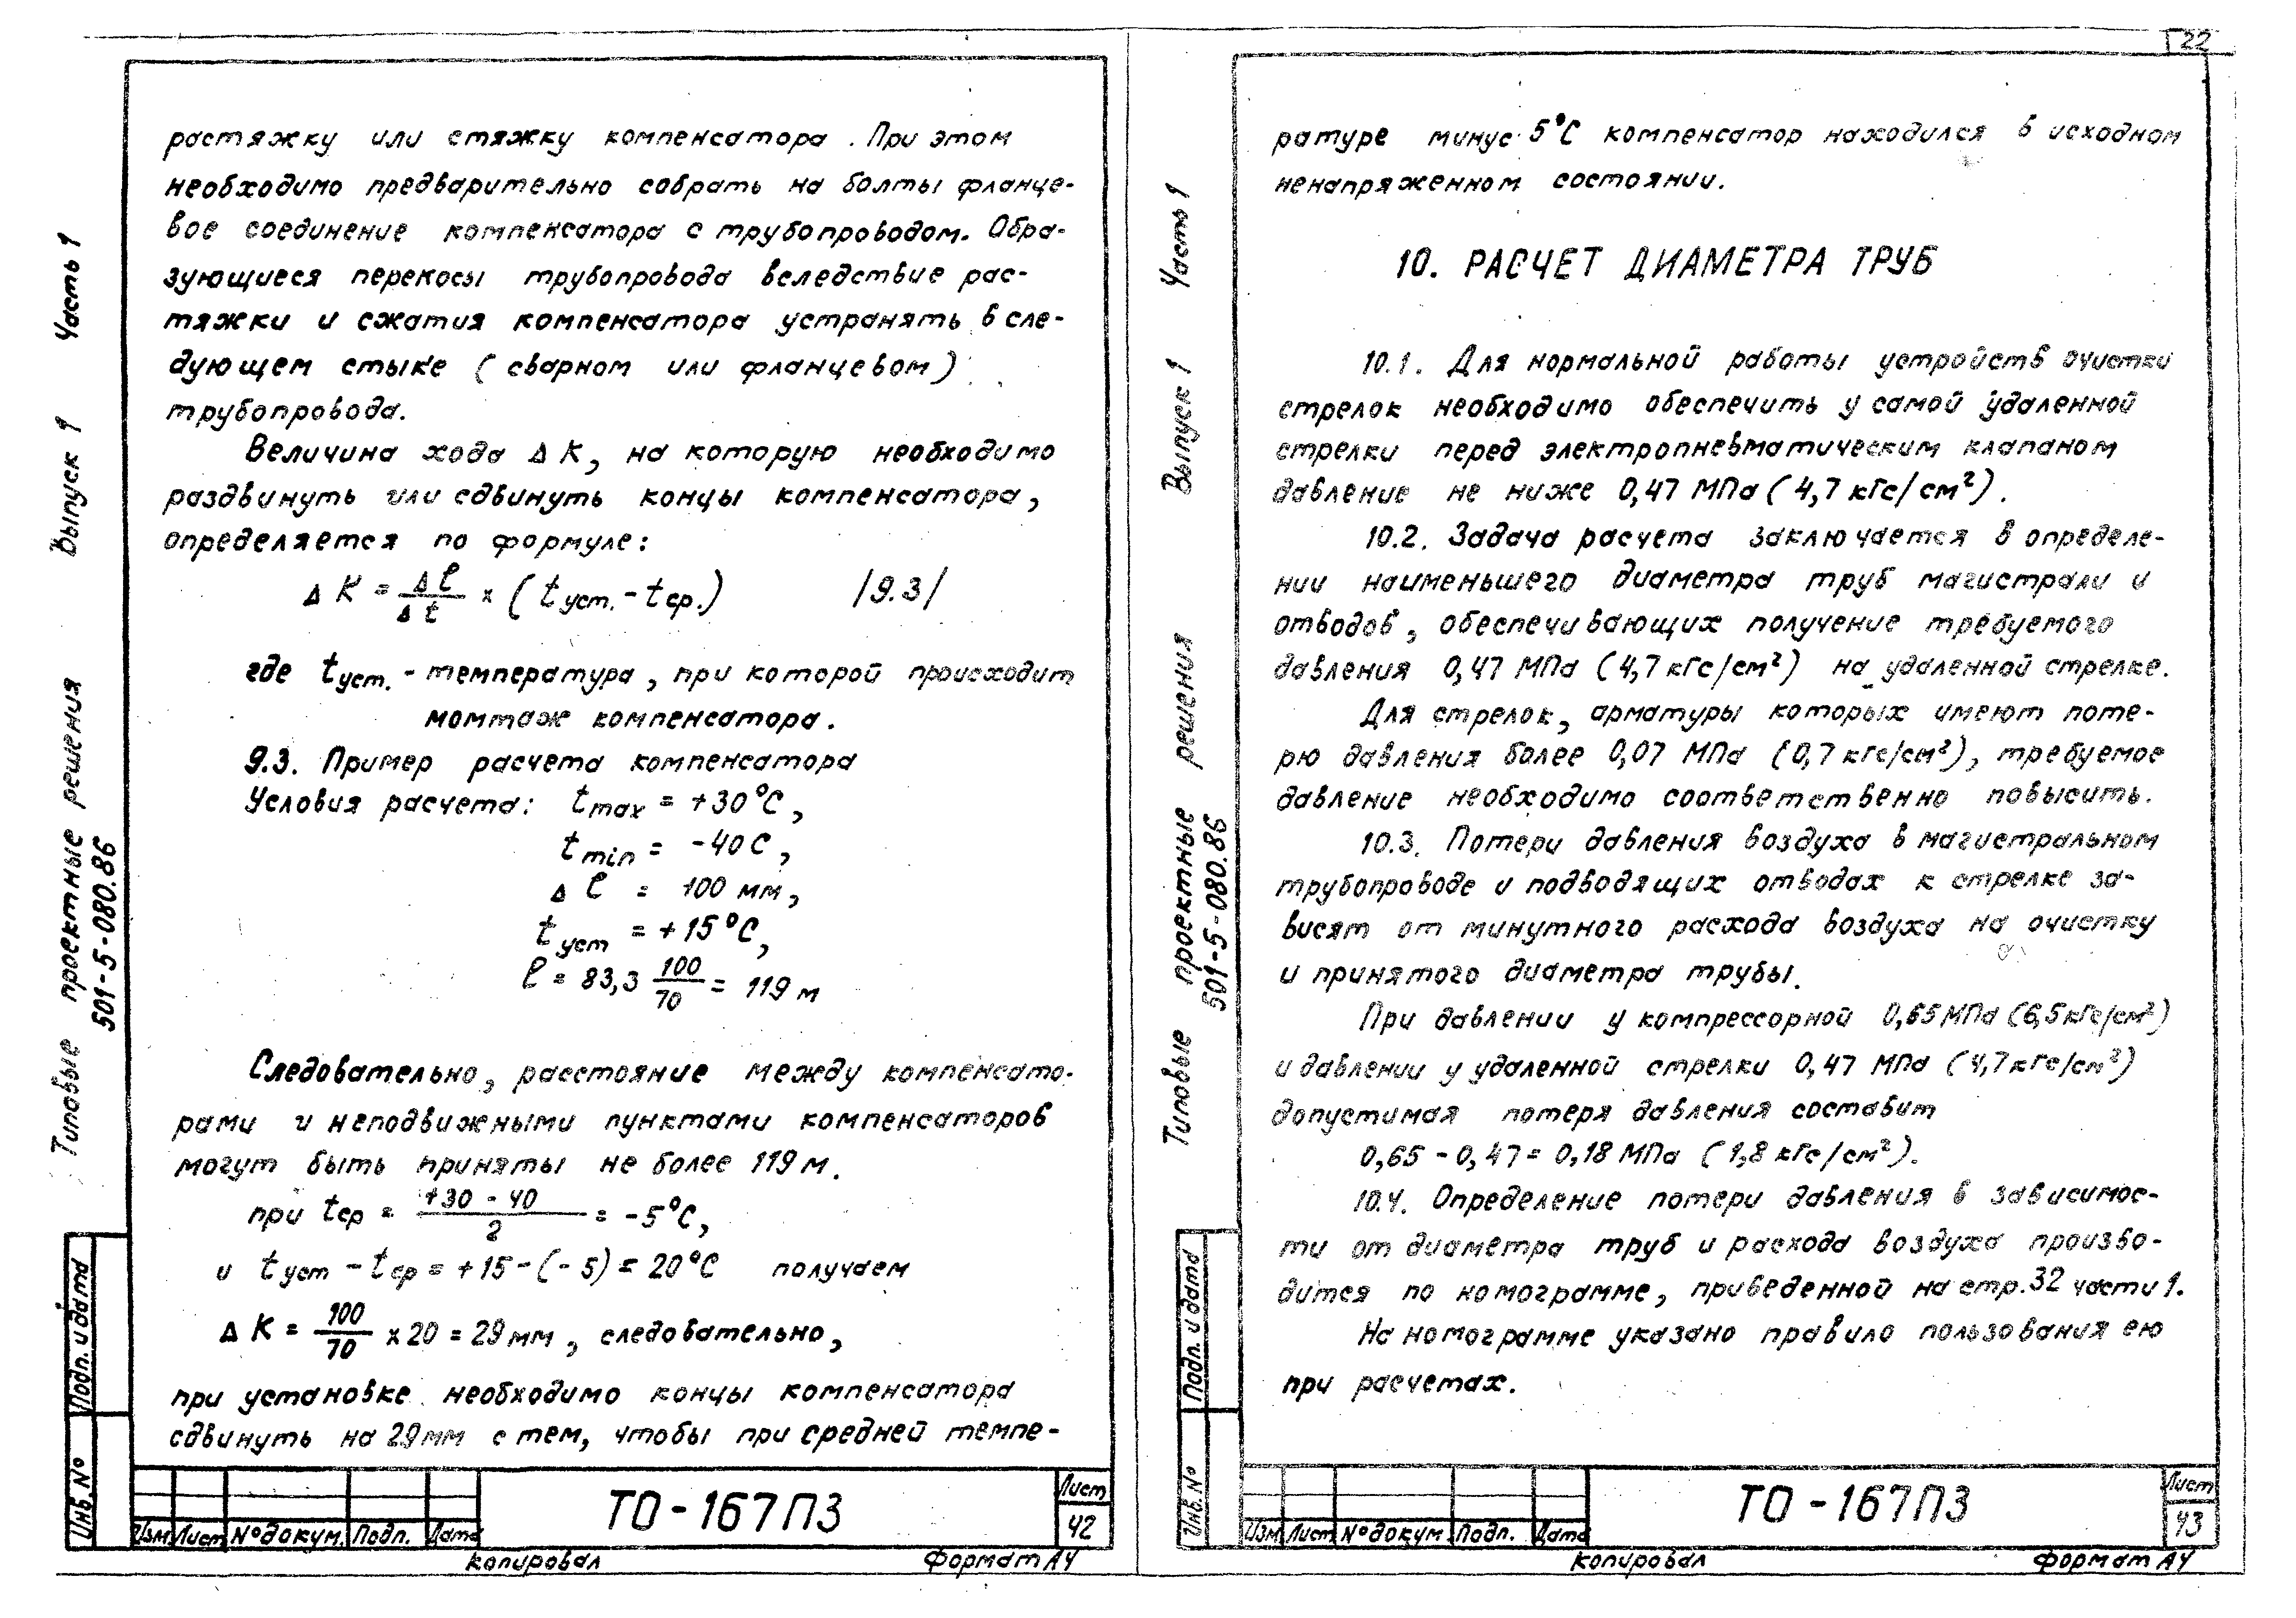 22
растяжку или стяжку компенсатора. При этом
необходимо предварительно собрать на болты фланце-
вое соединение компенсатора с трубопроводом. Обра-
зующиеся перекосы трубопровода вследствие рас-
тяжки и сжатия компенсатора устранять в сле-
дующем стыке (сварном или фланцевом)
трубопровода.
Величина хода Δ К, на которую необходимо
раздвинуть или сдвинуть концы компенсатора,
определяется по формуле:
Δ К = Δℓ/Δt × (t уст. - t ср.) /9.3/
где t уст. - температура, при которой происходит
монтаж компенсатора.
9.3. Пример расчета компенсатора
Условия расчета: t max = +30°С,
t min = -40 С,
Δ ℓ = 100 мм,
t уст = +15°С,
ℓ = 83,3 100/70 = 119 м
Следовательно, расстояние между компенсато-
рами и неподвижными пунктами компенсаторов
могут быть приняты не более 119 м.
при t ср = +30 - 40/2 = -5°С,
и t уст - t ср = +15-(-5) = 20°С получаем
Δ К = 100/70 × 20 = 29 мм, следовательно,
при установке необходимо концы компенсатора
сдвинуть на 29 мм с тем, чтобы при средней темпе-
Типовые проектные решения Выпуск 1 Часть 1
501-5-080.86
Подп. и дата
Инв. №
Изм Лист № докум. Подп. Дата
ТО-167ПЗ
Лист
42
копировал Формат А4
ратуре минус 5°С компенсатор находился в исходном
ненапряженном состоянии.
10. РАСЧЕТ ДИАМЕТРА ТРУБ
10.1. Для нормальной работы устройств очистки
стрелок необходимо обеспечить у самой удаленной
стрелки перед электропневматическим клапаном
давление не ниже 0,47 МПа (4,7 кГс/см²).
10.2. Задача расчета заключается в определе-
нии наименьшего диаметра труб магистрали и
отводов, обеспечивающих получение требуемого
давления 0,47 МПа (4,7 кГс/см²) на удаленной стрелке.
Для стрелок, арматуры которых имеют поте-
рю давления более 0,07 МПа (0,7 кГс/см²), требуемое
давление необходимо соответственно повысить.
10.3. Потери давления воздуха в магистральном
трубопроводе и подводящих отводах к стрелке за-
висят от минутного расхода воздуха на очистку
и принятого диаметра трубы.
При давлении у компрессорной 0,65 МПа (6,5 кГс/см²)
и давлении у удаленной стрелки 0,47 МПа (4,7 кГс/см²)
допустимая потеря давления составит
0,65 - 0,47 = 0,18 МПа (1,8 кГс/см²).
10.4. Определение потери давления в зависимос-
ти от диаметра труб и расхода воздуха произво-
дится по номограмме, приведенной на стр. 32 части 1.
На номограмме указано правило пользования ею
при расчетах.
Типовые проектные решения Выпуск 1 Часть 1
501-5-080.86
Подп. и дата
Инв. №
Изм Лист № докум. Подп. Дата
ТО-167ПЗ
Лист
43
копировал Формат А4